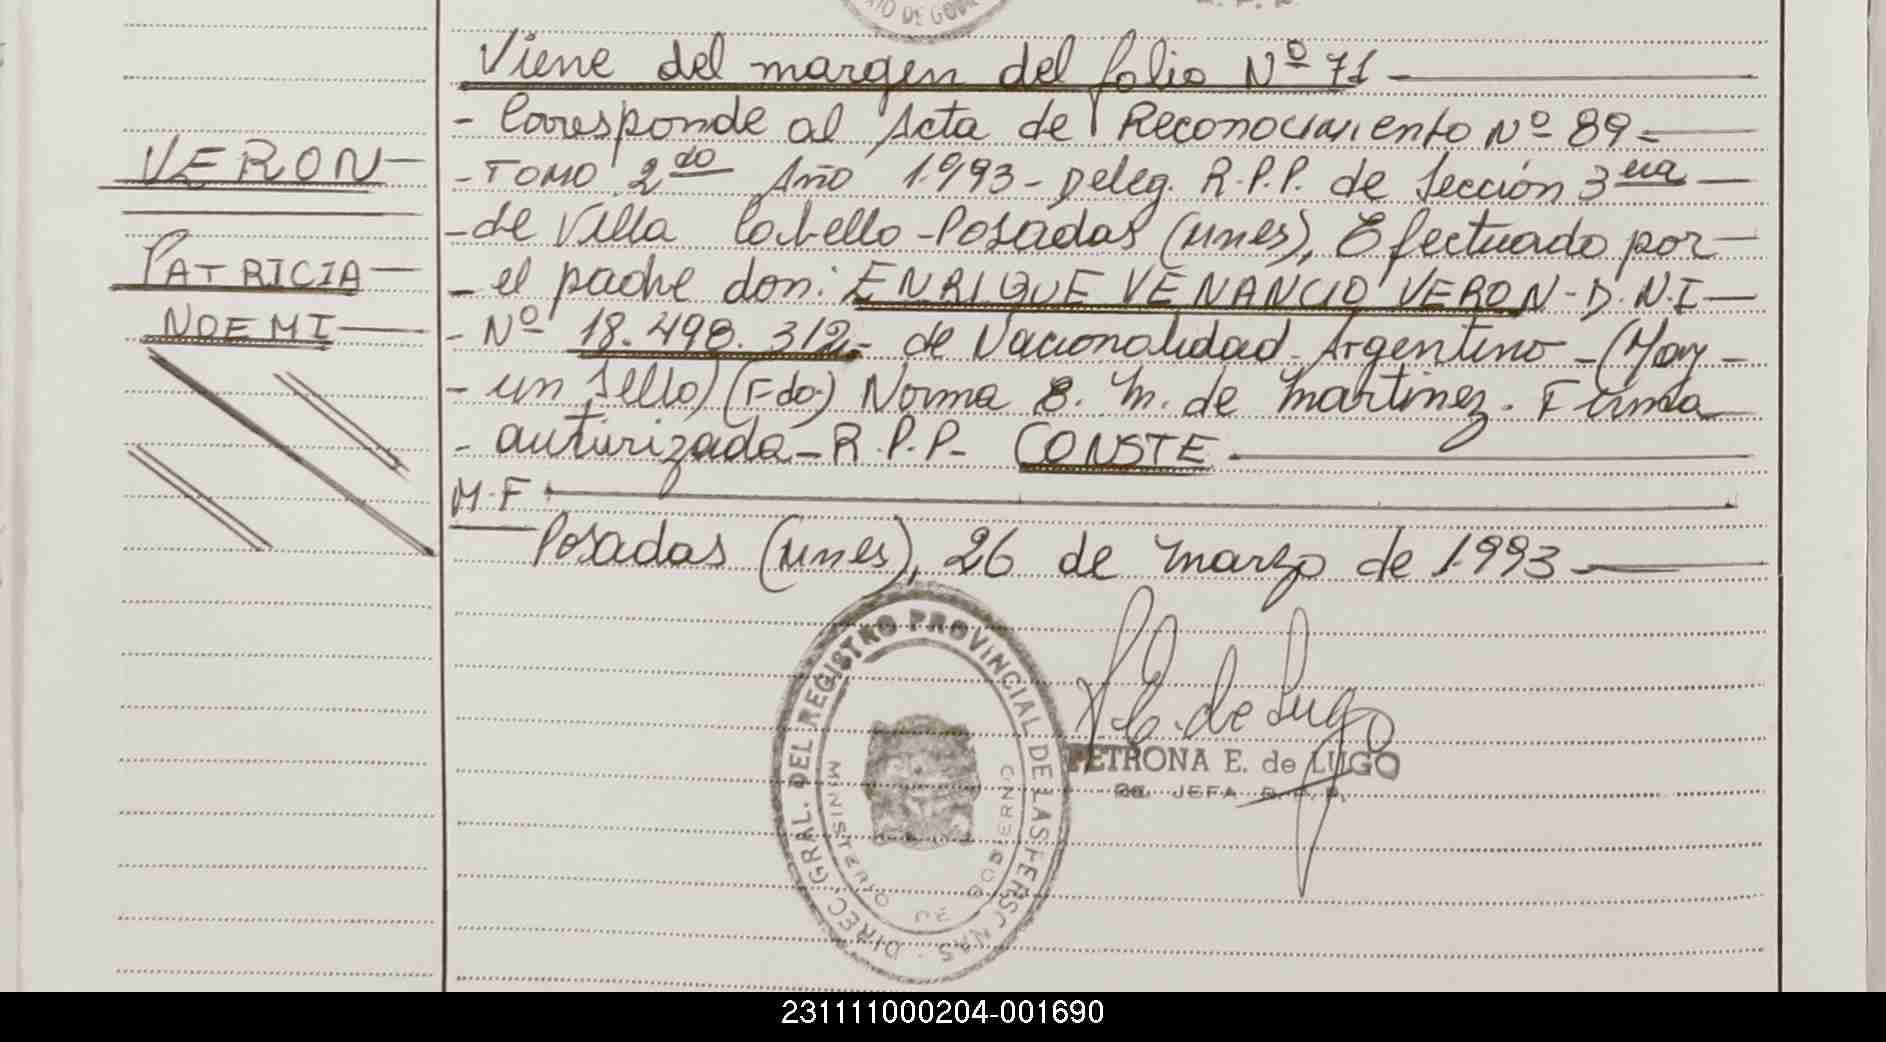 Viene del margen del folio Nº 71
- Corresponde al Acta de Reconocimiento Nº 89-
VERON
- TOMO 2do Año 1.993 - Deleg. R.P.P. de Sección 3era
- de Villa Cabello - Posadas (Mnes), Efectuado por
PATRICIA
- el padre don: ENRIQUE VENANCIO VERON - D.N.I
NOEMI
- Nº 18.498.312.- de Nacionalidad Argentino - (Hay -
- un sello) (Fdo) Norma B. M. de Martinez. Firma
- autorizada - R.P.P- CONSTE
M.F
Posadas (Mnes), 26 de Marzo de 1.993
DIREC. GRAL. DEL REGISTRO PROVINCIAL DE LAS PERSONAS
MINISTERIO DE GOBIERNO
P E. de Lugo
PETRONA E. de LUGO
JEFA
231111000204-001690